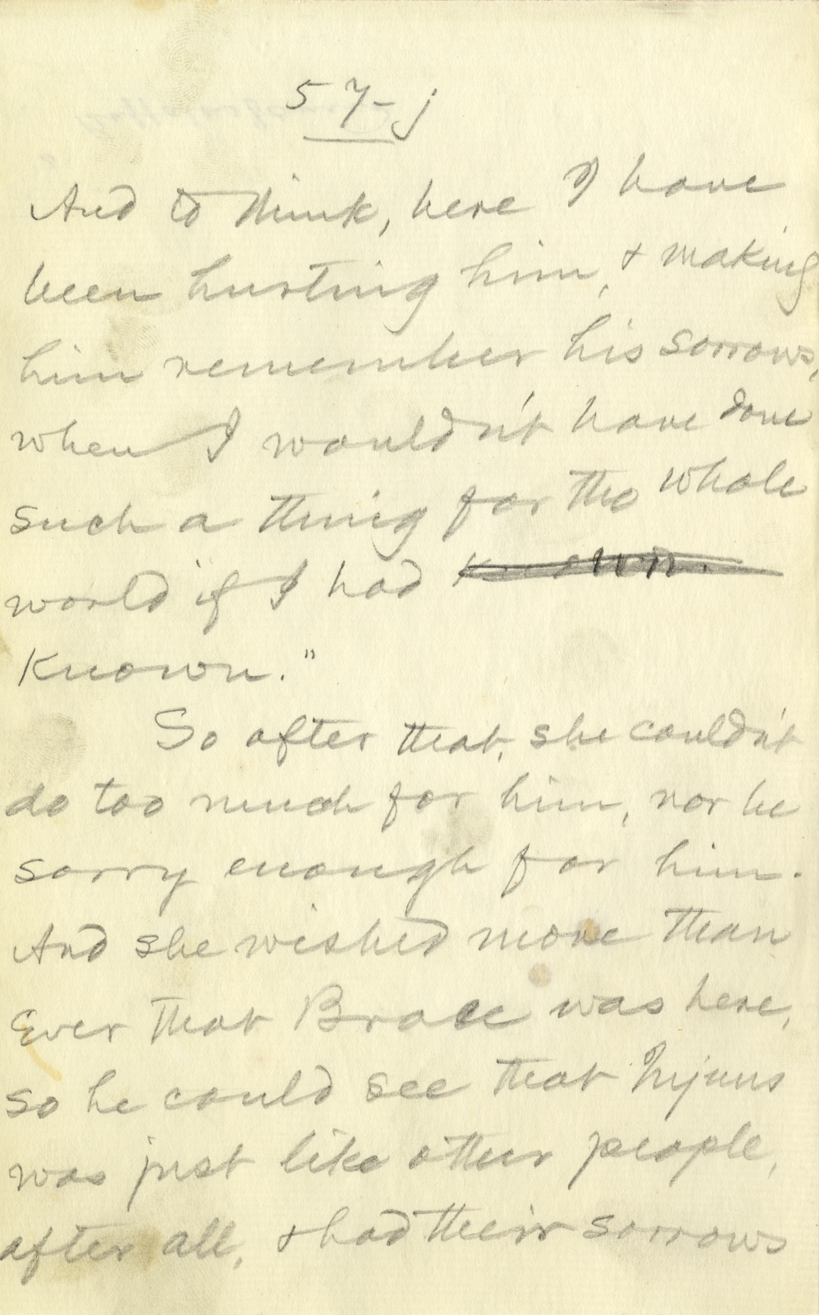 57-j
And to think, here I have
been hurting him, & making
him remember his sorrows,
when I wouldn't have done
such a thing for the whole
world if I had known.
known."
So after that, she couldn't
do too much for him, nor be
sorry enough for him.
And she wished more than
ever that Brace was here,
so he could see that Injuns
was just like other people,
after all, & had their sorrows